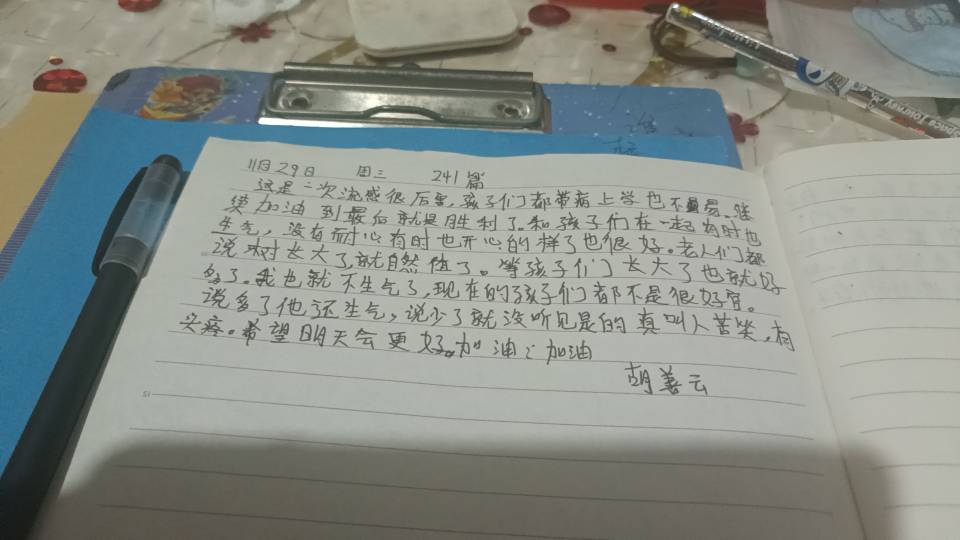 11月29日 周三 241篇
这是一次流感很厉害,孩子们都带病上学也不易。继
续加油到最后就是胜利了。和孩子们在一起有时也
生气,没有耐心有时也开心的样子也很好。老人们都
说树长大了,就自然值了。等孩子们长大了也就好
多了。我也就不生气了,现在的孩子们都不是很好管。
说多了他还生气,说少了就没听见是的真叫人苦笑,有
头疼。希望明天会更好。加油 加油
胡善云
51